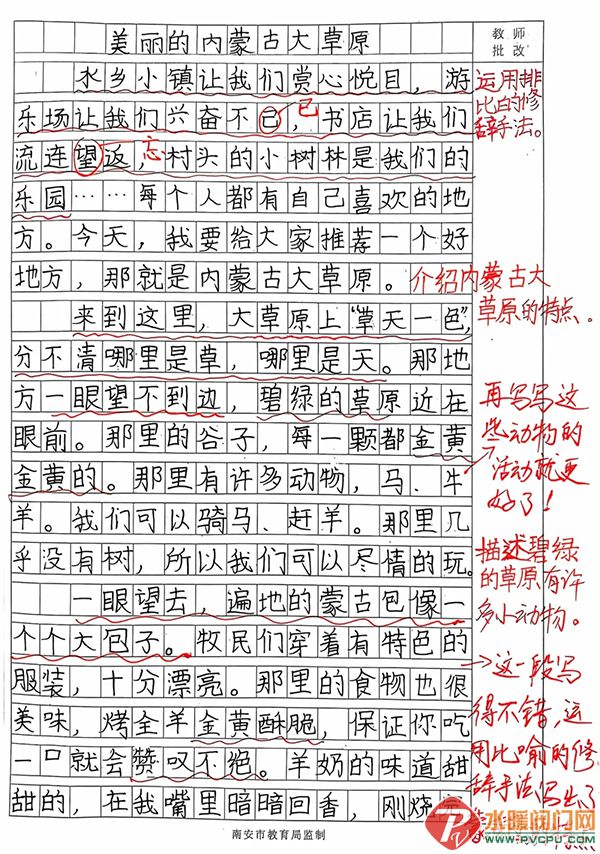 美丽的内蒙古大草原
教师
批改
水乡小镇让我们赏心悦目，游
乐场让我们兴奋不己，书店让我们
已
流连望返，村头的小树林是我们的
忘
乐园……每个人都有自己喜欢的地
方。今天，我要给大家推荐一个好
地方，那就是内蒙古大草原。
来到这里，大草原上“草天一色”，
分不清哪里是草，哪里是天。那地
方一眼望不到边，碧绿的草原近在
眼前。那里的谷子，每一颗都金黄
金黄的。那里有许多动物，马、牛
羊。我们可以骑马、赶羊。那里几
乎没有树，所以我们可以尽情的玩。
一眼望去，遍地的蒙古包像一
个个大包子。牧民们穿着有特色的
服装，十分漂亮。那里的食物也很
美味，烤全羊金黄酥脆，保证你吃
一口就会赞叹不绝。羊奶的味道甜
甜的，在我嘴里暗暗回香，刚烧
运用排
比的修
辞手法。
介绍内蒙古大
草原的特点。
再写写这
些动物的
活动就更
好了！
描述碧绿
的草原有许
多小动物。
这一段写
得不错，运
用比喻的修
辞手法，写出了
南安市教育局监制
水暖阀门网
WWW.PVCPU.COM